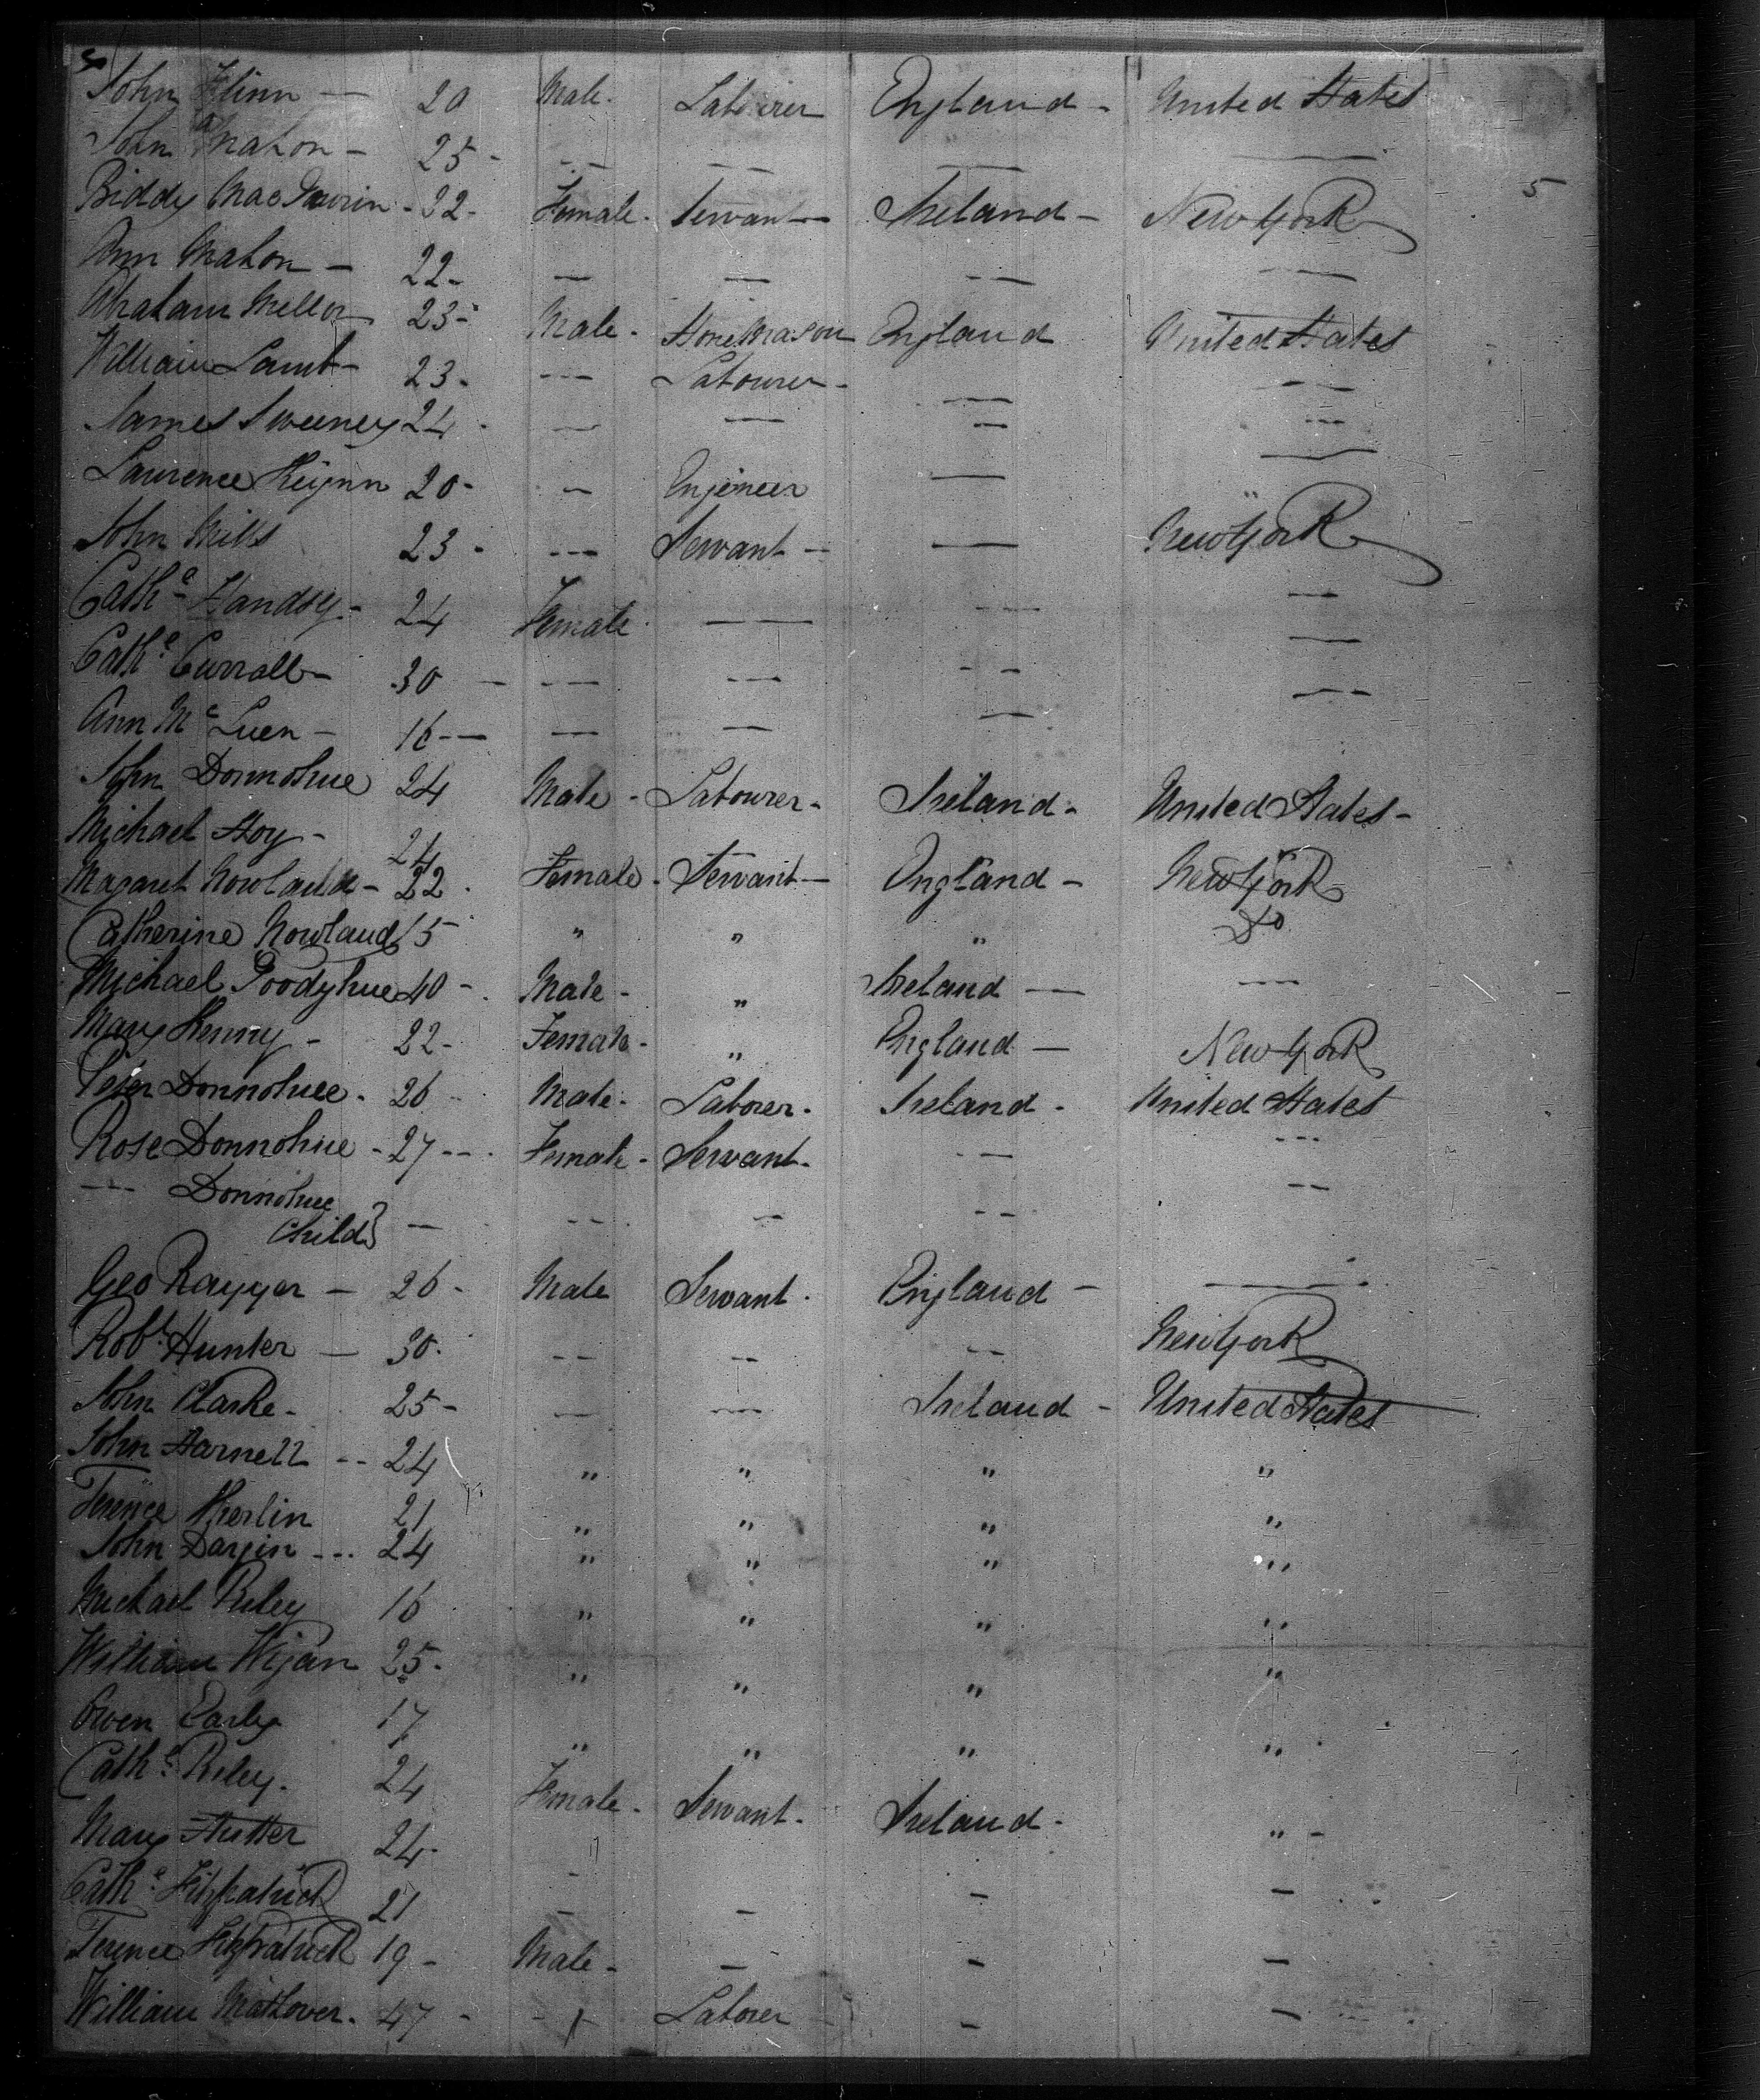 John Flinn — 20 Male. Labourer England - United States
John Mahon - 25 - - - — — —
5
Biddy - 22 - Female. Servant - Ireland - New York
Ann Mahon - 22 - — — - — — —
Abraham Mellor 23 - Male. Stone Mason England United States
William Lamb - 23 - --- Labourer - — — —
James Sweeney 24 - — — — ---
Laurence 20 - — Enjineer — —
John Mills 23 - --- Servant -- — New York
Cathe 24 Female — - — —
Cathe Carroll - 30 — - — --- - - —
Ann Mc Luen - 16 -- — — — — - —
John Donnohue 24 Male - Labourer - Ireland - United States -
Michael Hoy - 24
Magaret Nowland - 22 - Female - Servant - England - New York
Catherine Nowland 15 " " " Do
Michael Goodyhue 40 - Male - " Ireland — ---
Mary Henny - 22 - Female - " England — New York
Peter Donnohue - 26 - Male - Laborer - Ireland - United States
Rose Donnohue - 27 -- - Female - Servant - - — ---
--- Donnohue — - - — - - --
Child }
Geo — 26 - Male Servant - England - —
Robt Hunter — 30 - -- -- -- New York
John Clarke - 25 - — --- Ireland - United States
John -- 24 " " " "
Terence 21 " " " "
John Dargin --- 24 " " " "
Michael Riley 16 " " " "
William 25 - " " " "
Owen Early 17 " " " "
Cathe Riley - 24 Female - Servant - Ireland -
Mary 24 - " " -
Cathe Fitzpatrick 21 - - - -
Terence Fitzpatrick 19 - Male - - - -
William 47 - - Laborer - -